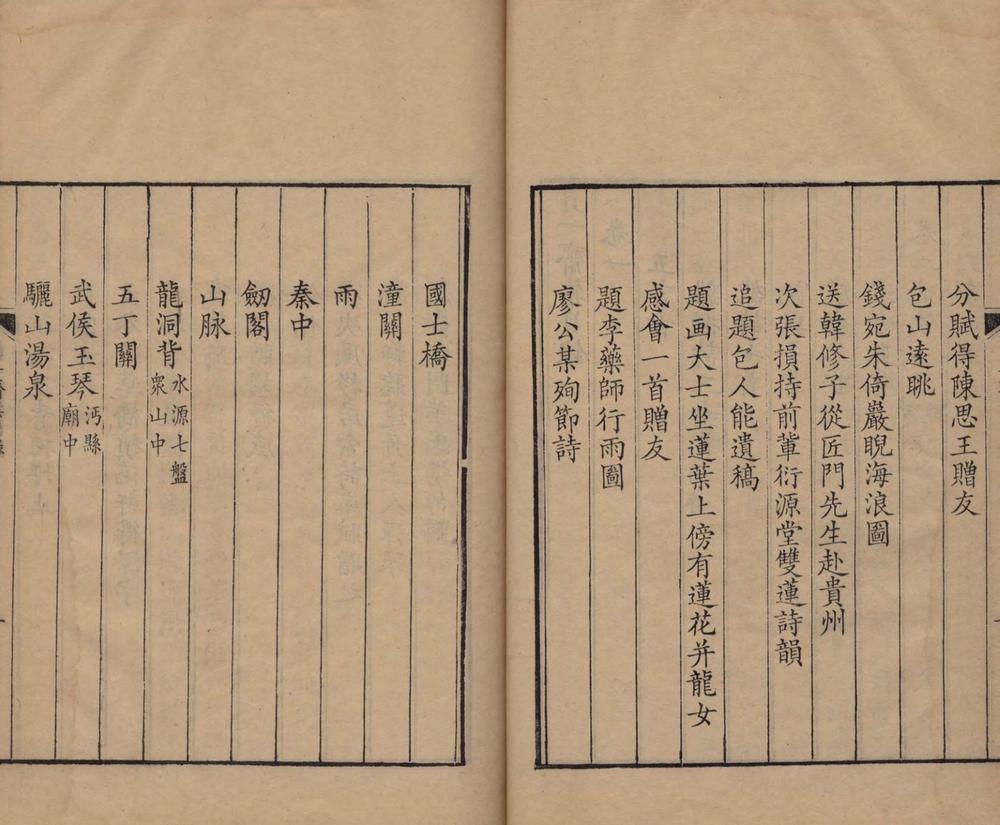 分賦得陳思王贈友
包山遠眺
錢宛朱倚巖睨海浪圖
送韓修子從匠門先生赴貴州
次張損持前輩衍源堂雙蓮詩韻
追題包人能遺稿
題画大士坐蓮葉上傍有蓮花并龍女
感會一首贈友
題李藥師行雨圖
廖公某殉節詩
國士橋
潼關
雨
秦中
劒閣
山脉
龍洞背水源七盤
衆山中
五丁關
武侯玉琴沔縣
廟中
驪山湯泉